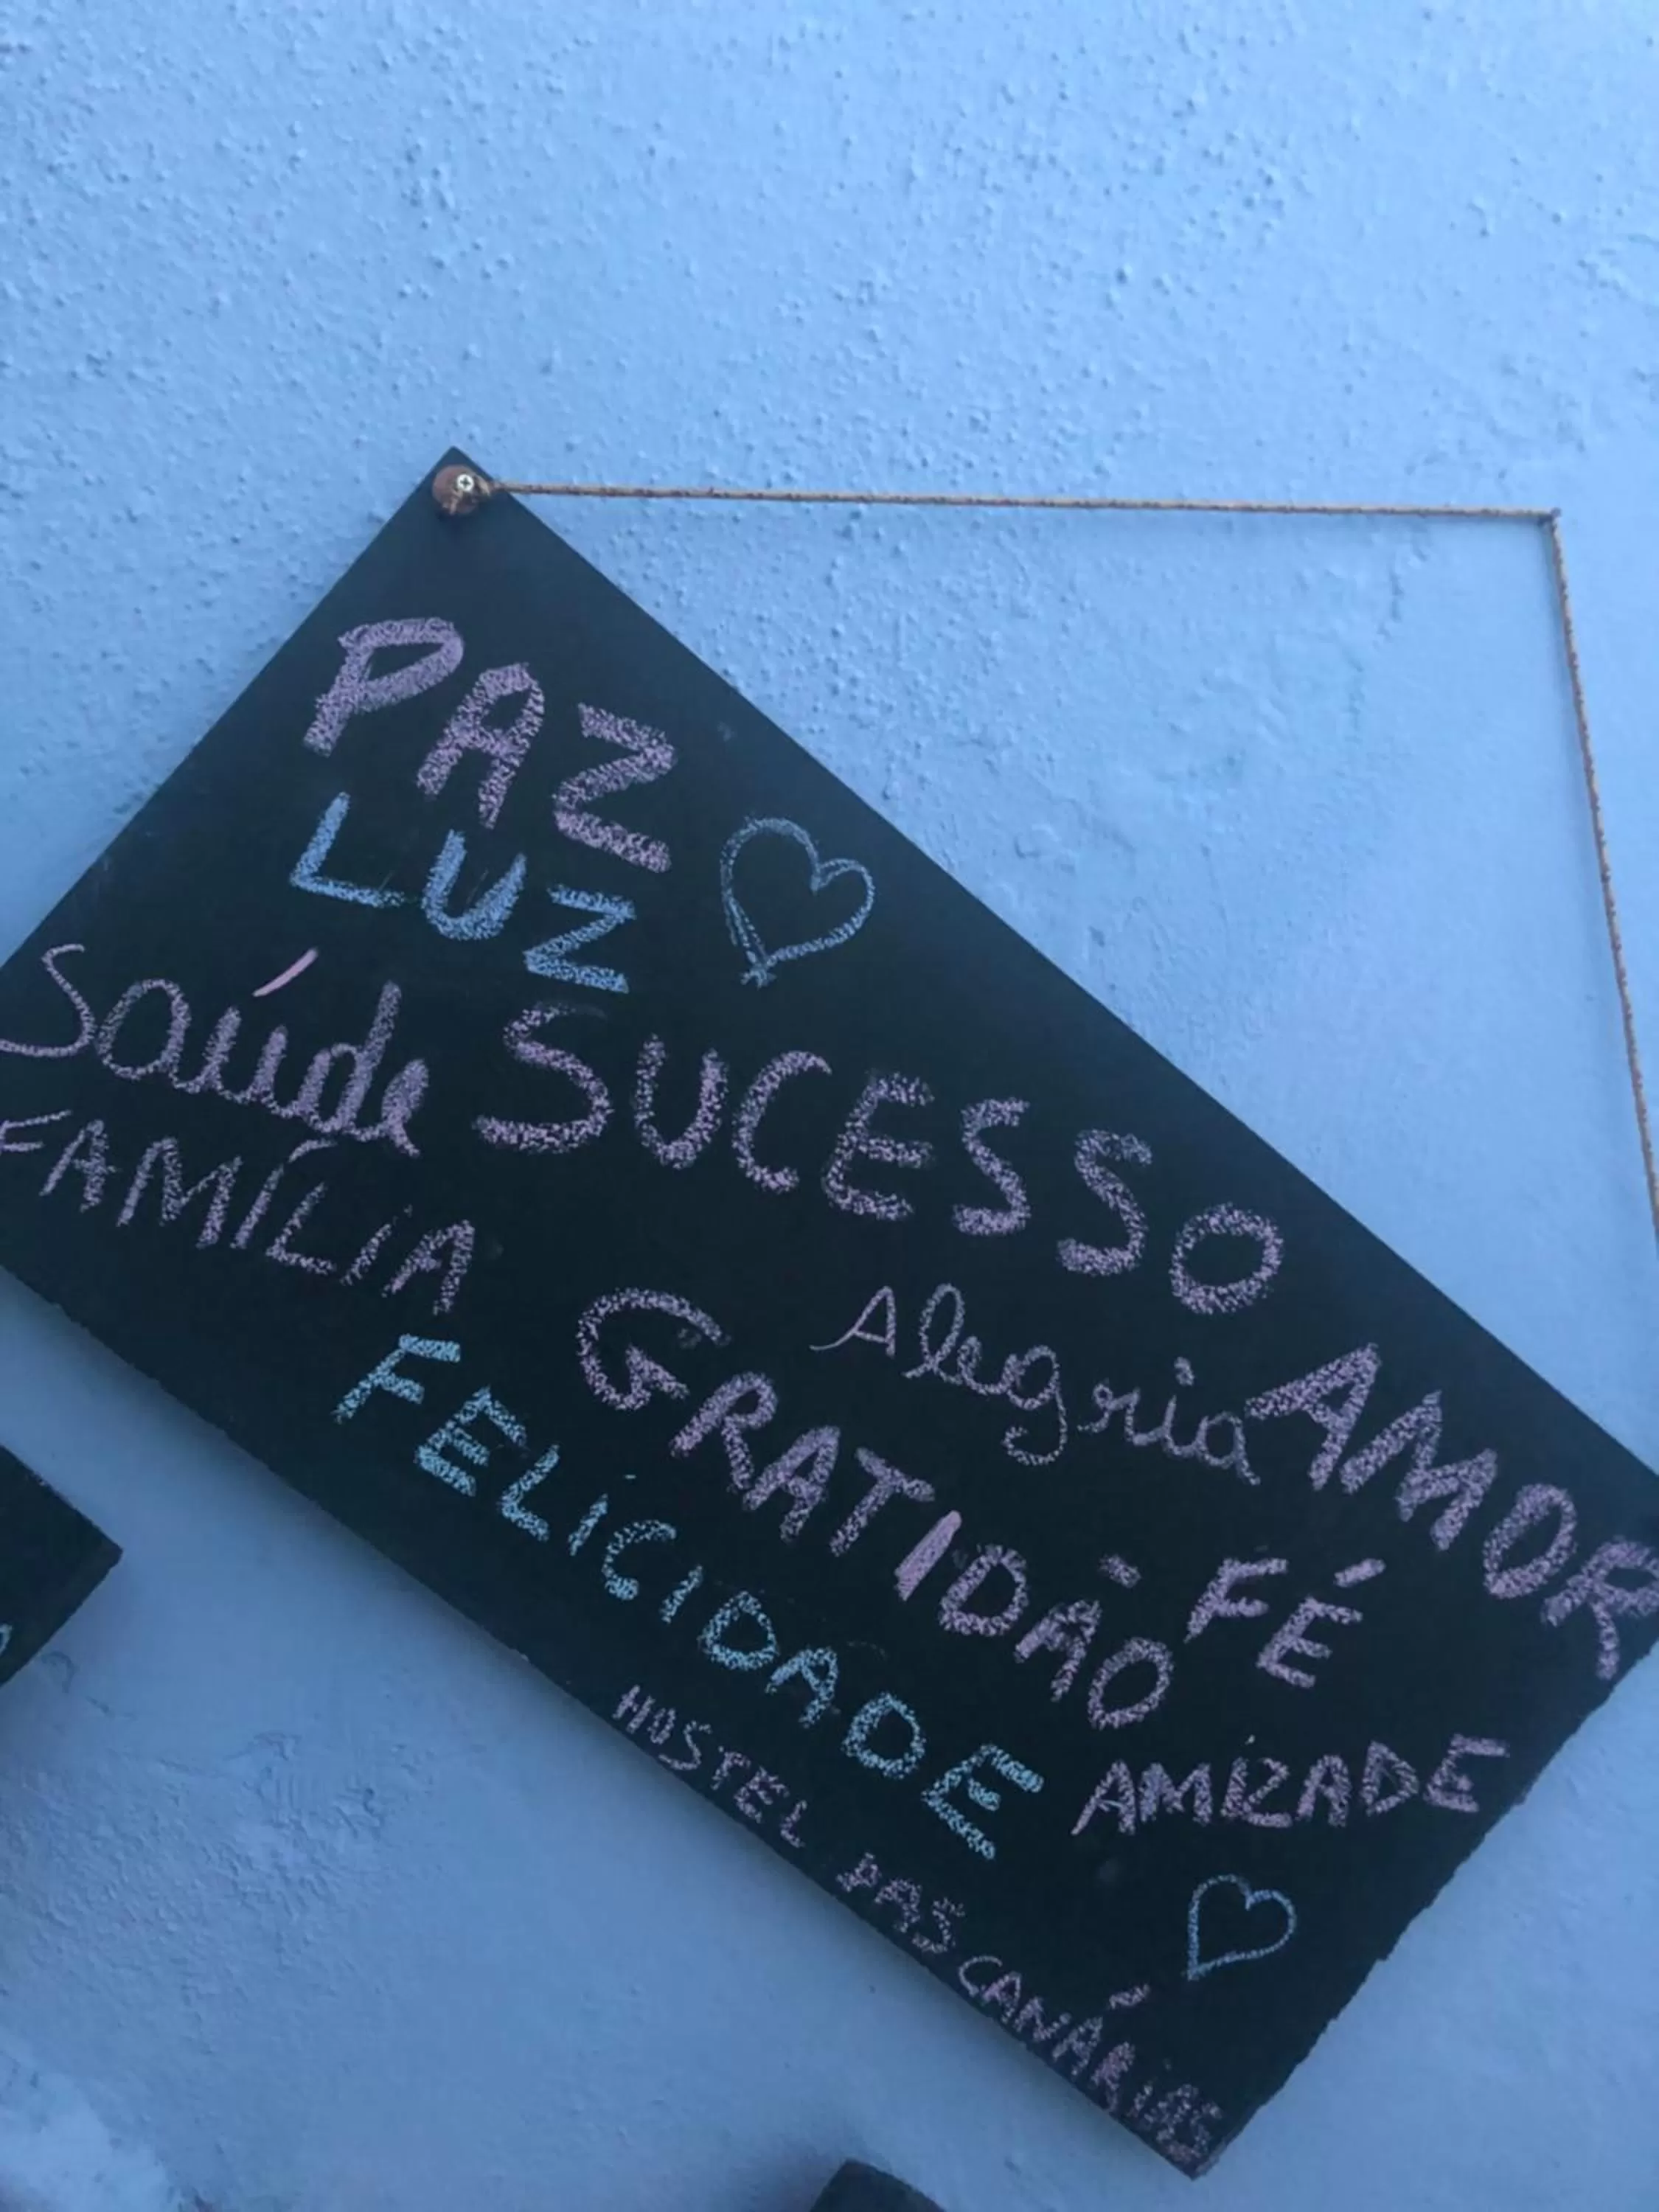 PAZ
LUZ
Saúde SUCESSO
FAMÍLIA Alegria AMOR
GRATIDÃO FÉ
FELICIDADE AMIZADE
HOSTEL DAS CANÁRIAS